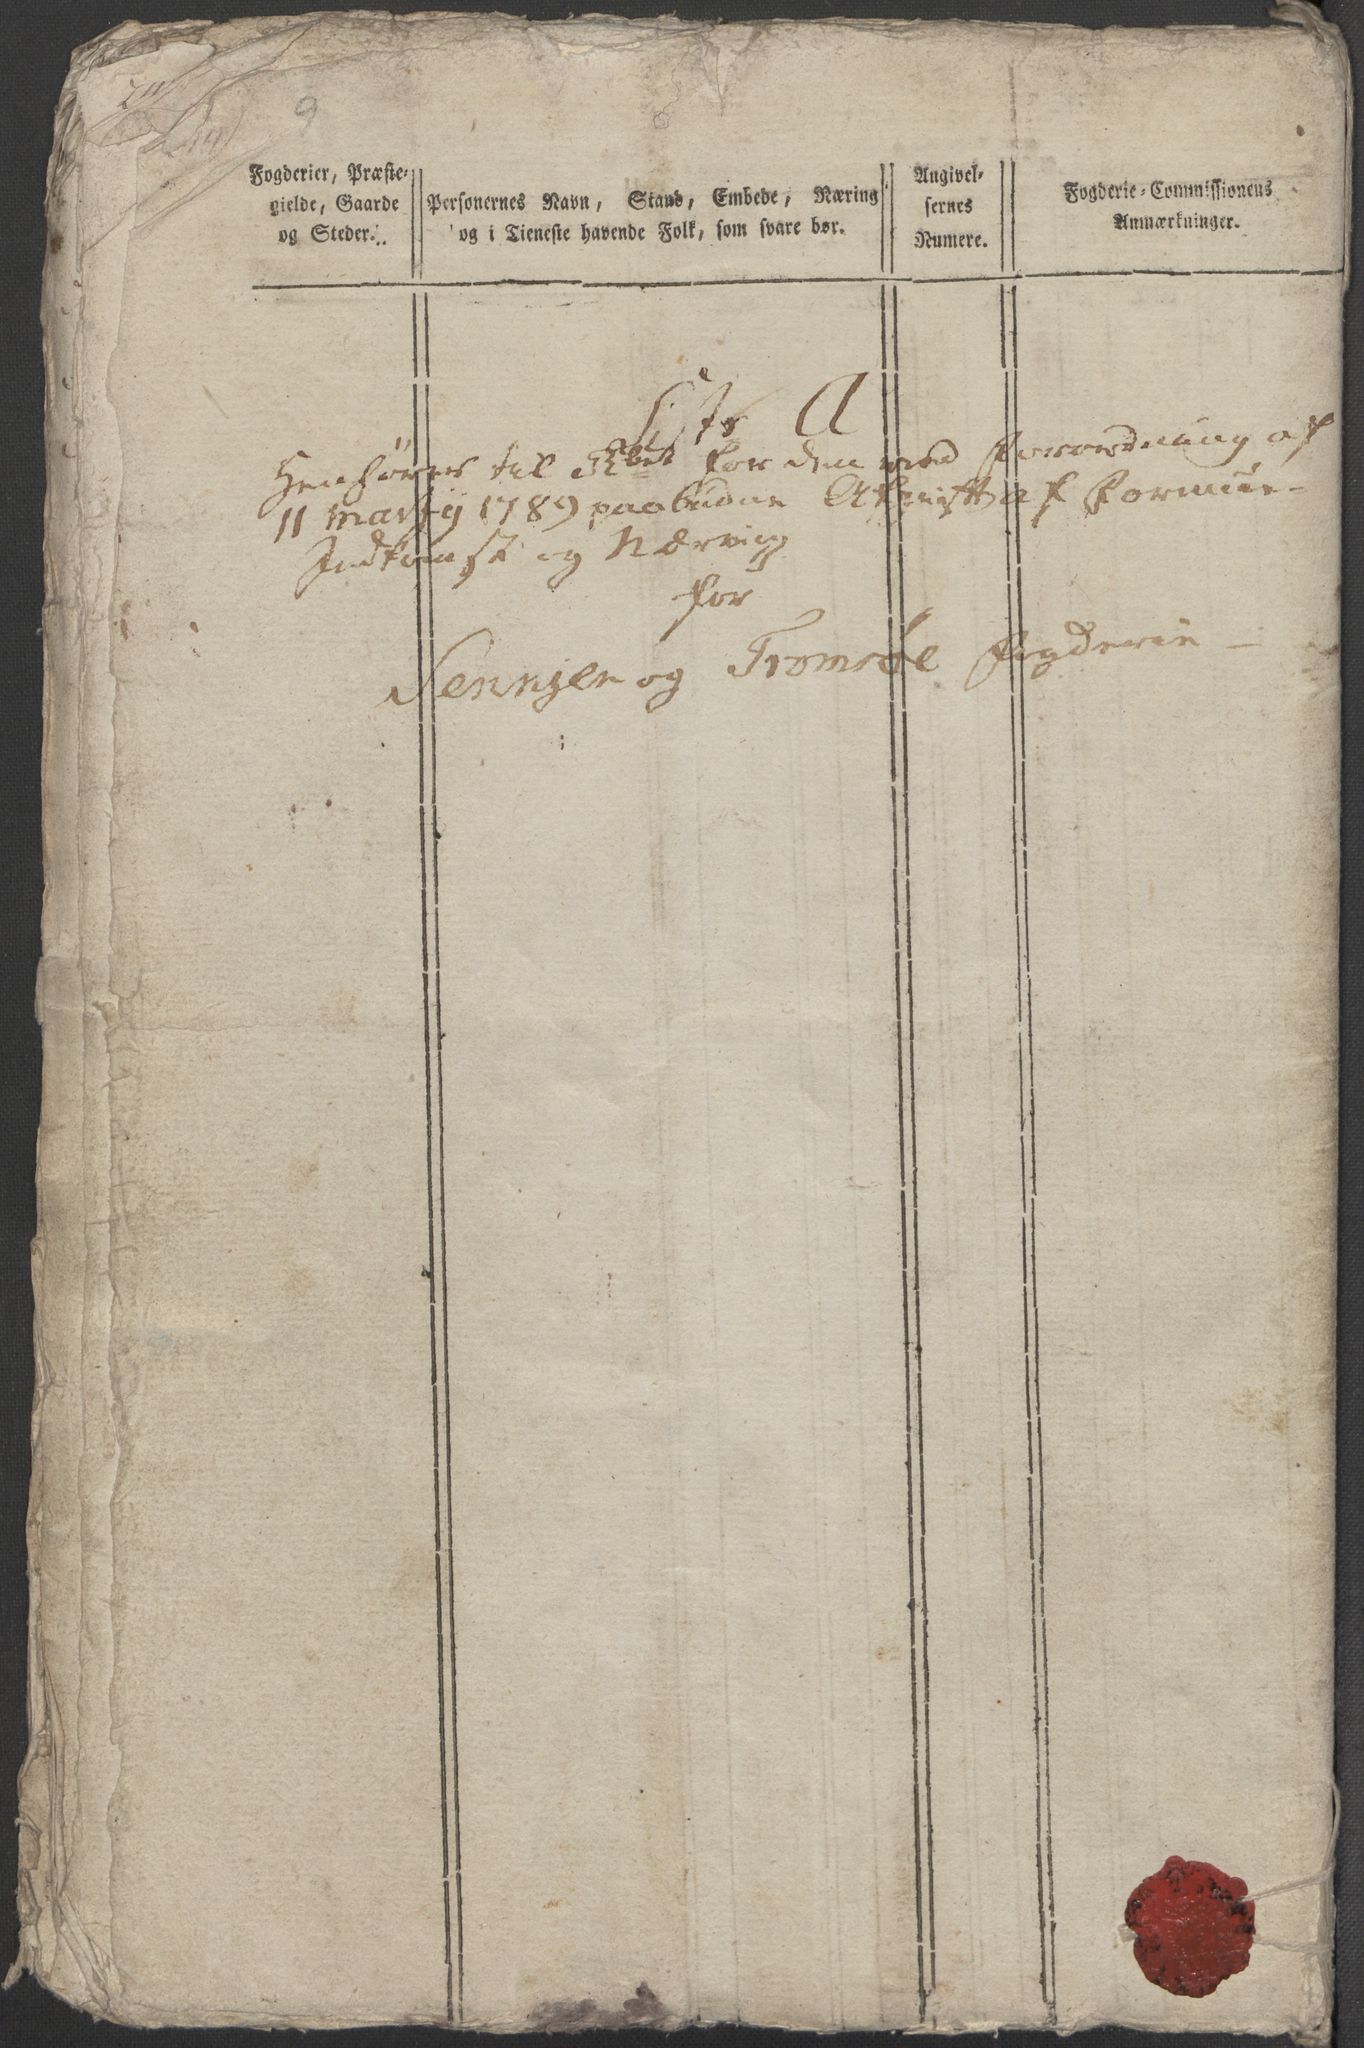 9
Fogderier, Præste-
gielde, Gaarde
og Steder.
Personernes Navn, Stand, Embede, Næring
og i Tieneste havende Folk, som svare bør.
Angivel-
sernes
Numere.
Fogderie-Commissionens
Anmærkninger.
A
Henhører til for den ved Forordning af
11 Martij 1789 paabudne Afgift af Formue-
Indkomst og Næring
for
Sennjen og Tromsøe Fogderie -